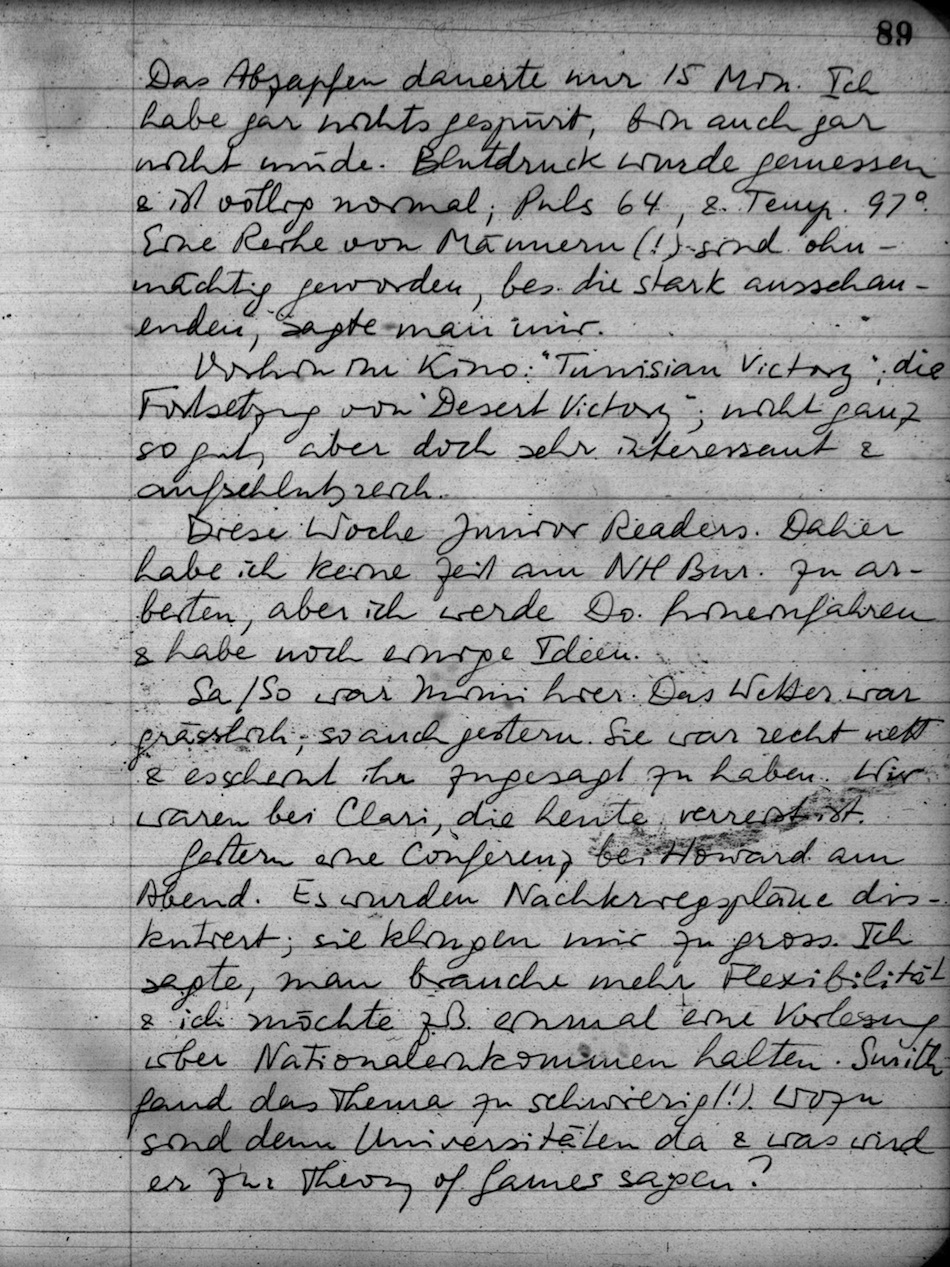 89
Das Abzapfen dauerte nur 15 Min. Ich
habe gar nichts gespürt, bin auch gar
nicht müde. Blutdruck wurde gemessen
& ist völlig normal; Puls 64, & Temp. 97°.
Eine Reihe von Männern (!) sind ohn-
mächtig geworden, bes. die stark ausschau-
enden, sagte man mir.
Vorhin im Kino: "Tunisian Victory"; die
Fortsetzung von "Desert Victory"; nicht ganz
so gut, aber doch sehr interessant &
aufschlußreich.
Diese Woche Junior Readers. Daher
habe ich keine Zeit am NH Bur. zu ar-
beiten, aber ich werde Do. hineinfahren
& habe noch einige Ideen.
Sa/So war Mimi hier. Das Wetter war
grässlich; so auch gestern. Sie war recht nett
& es scheint ihr zugesagt zu haben. Wir
waren bei Clari, die heute verreist ist.
Gestern eine Conferenz bei Howard am
Abend. Es wurden Nachkriegspläne dis-
kutiert; sie klingen mir zu gross. Ich
sagte, man brauche mehr Flexibilität
& ich möchte z.B. einmal eine Vorlesung
über Nationaleinkommen halten. Smith
fand das Thema zu schwierig (!). Wozu
sind denn Universitäten da & was wird
er zur Theory of Games sagen?